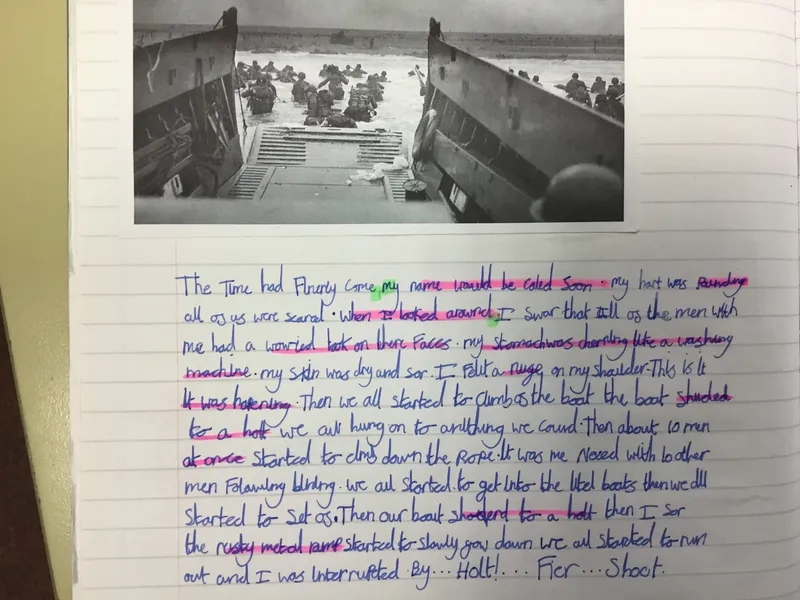 The Time had Finerly Came my name would be caled Soon. my hart was Pounding
all of us were scared. When I looked around, I Swar that all of the men with
me had a worried look on there Faces. my Stomach was cherning like a washing
machine. my Skin was dry and sor. I Felt a nuge on my shoulder. This is it
it was hapening. Then we all started to climb as the boat the boat shuded
to a holt we all hung on to anithing we could. Then about 10 men
at once Started to climb down the ROPE. It was me Nexed with 10 other
men Folawing blinding. we all started to get into the litel boats then we all
Started to Set of. Then our boat to a holt then I Sor
the rusty metal ramp started to slowly gow down we all started to run
out and I was Interrupted By... Holt!... Fier... Shoot.